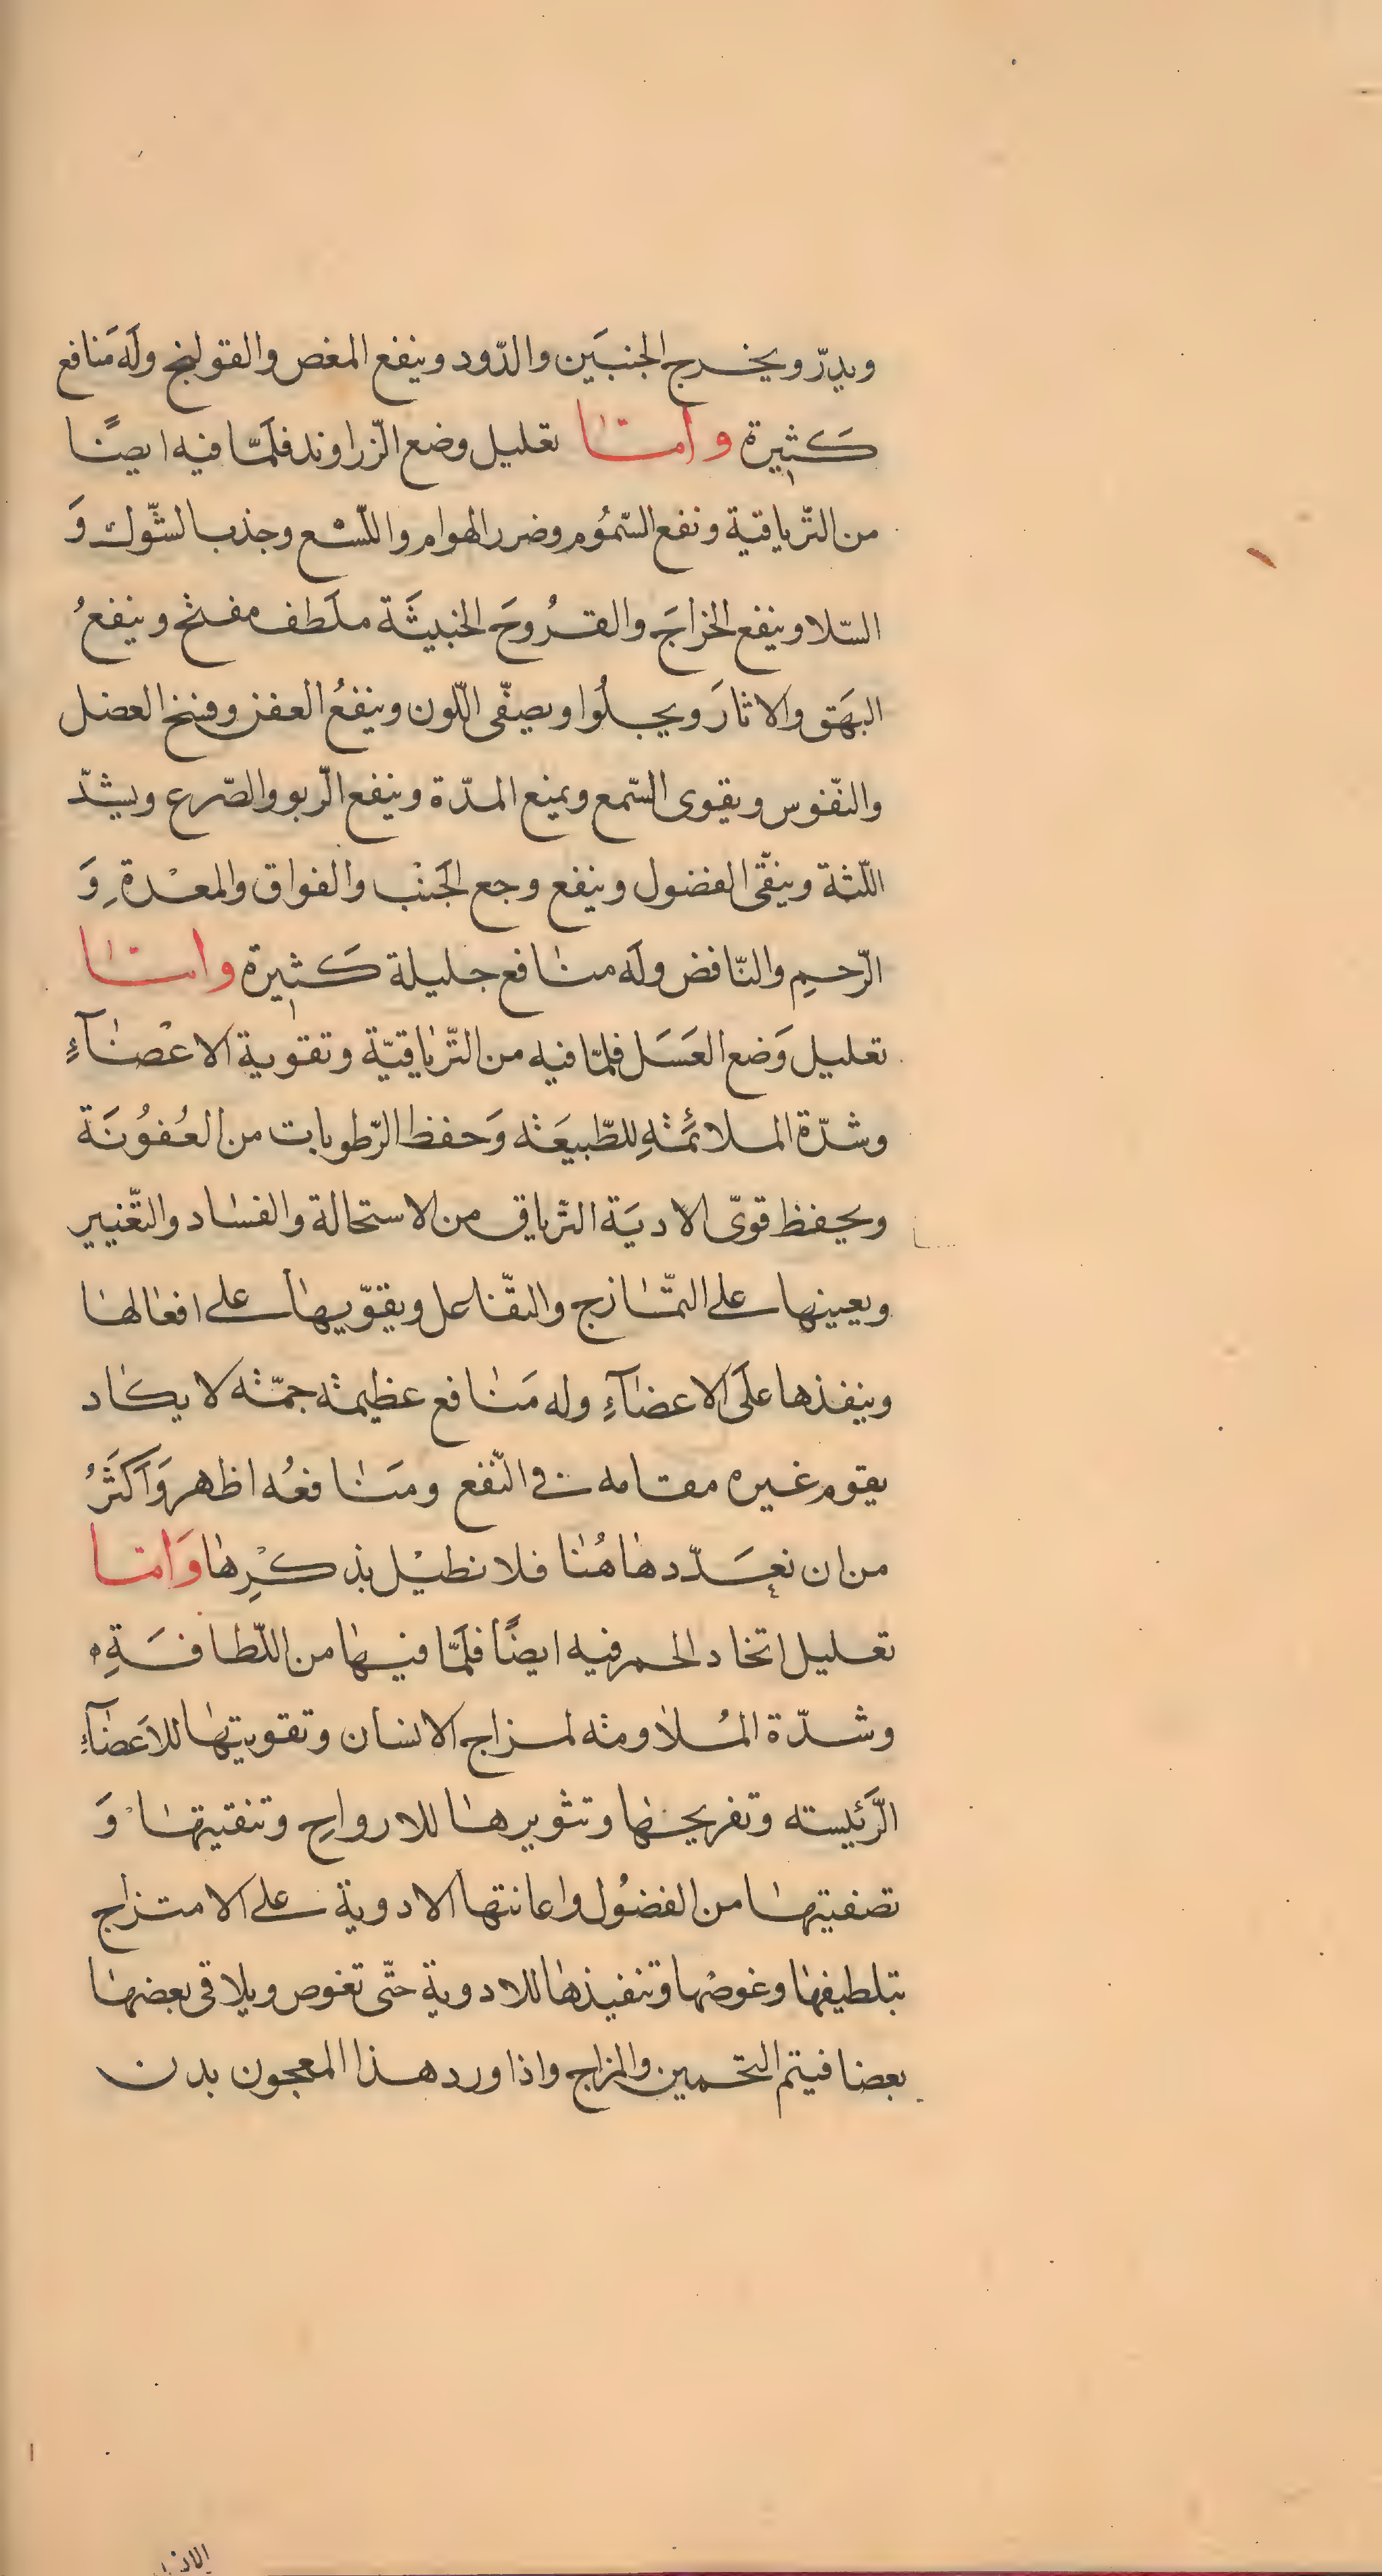 ويدرّ ويخرج الجنبَين والدّود وينفع المغص والقولنج ولَه مَنافع
كَثيرة وامّا تعليل وضع الزّراوند فلَمّا فيه ايضًا
من التّرياقية ونفع السّمُوم وضرر الهوام واللّسْع وجذب الشّوك وَ
السّلا وينفع الخراجَ والقرُوحَ الخبيثَة ملَطف مفتح وينفعُ
البهَق والاثارَ ويجلُوا ويصفّى اللّون وينفعُ العفز وفسخ العضل
والنقّوس ويقوى السّمع ويمنع المدّة وينفع الّربو والصّرع ويشدّ
اللّثة وينقّى الفضول وينفع وجع الجَنْب والفواق والمعْدةِ وَ
الرّحيم والنّافض ولَه منافع جليلة كَثيرة وامّا
تعليل وَضع العَسَل فلمّا فيه من التّرياقيّة وتقوية الاعْضآءِ
وشدّة الملائمَّةِ للطّبيعَة وَحفظ الرّطوبات من العُفوُنَة
ويحفظ قوىّ الاديَة التّرياق من الاستحالة والفسَاد والتّغيير
ويعينها على التّمازج والتفّاعل ويقوّيها على افعالها
وينفذها علَى الاعضآءِ وله مَنافع عظيمة جمّة لا يكاد
يقوم غيره مقامه في النّفع ومَنافعُه اظهر وَاَكَثَرُ
من ان نعَدّدها هُنا فلا نطيْل بذكْرِها وَامّا
تعليل اتخاد الخمر فيه ايضًا فلَمّا فيها من اللّطافَةِ
وشدّة المُلاومة لمزاج الانسان وتقويتها للاَعضآءِ
الرَّئيسة وتفريحها وتنويرها للارواح وتنقيتها وَ
تصفيتها من الفضُول واعانتها الادوية على الامتزاج
بتلطيفها وغوصْها وتنفيذها للادوية حتّى تغوص ويلاقى بعضها
بعضا فيتم التخمين والمزاج واذا ورد هذا المعجون بدن